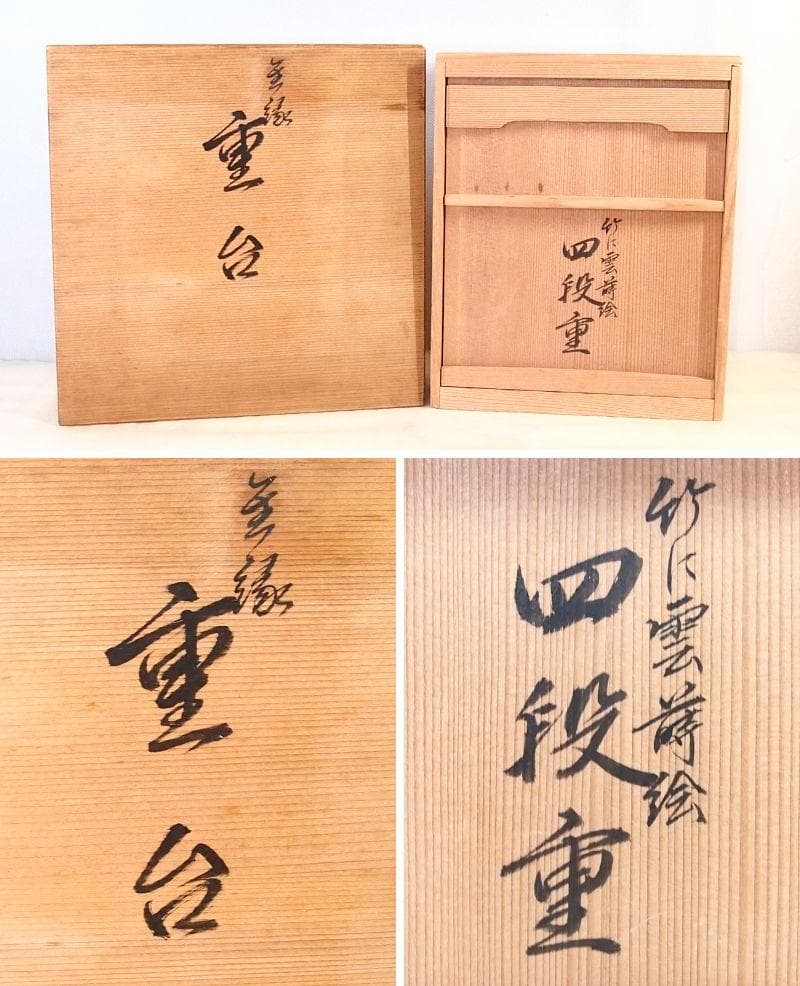 金縁
重台
竹に雲蒔絵
四段重
金縁
重台
竹に雲蒔絵
四段重